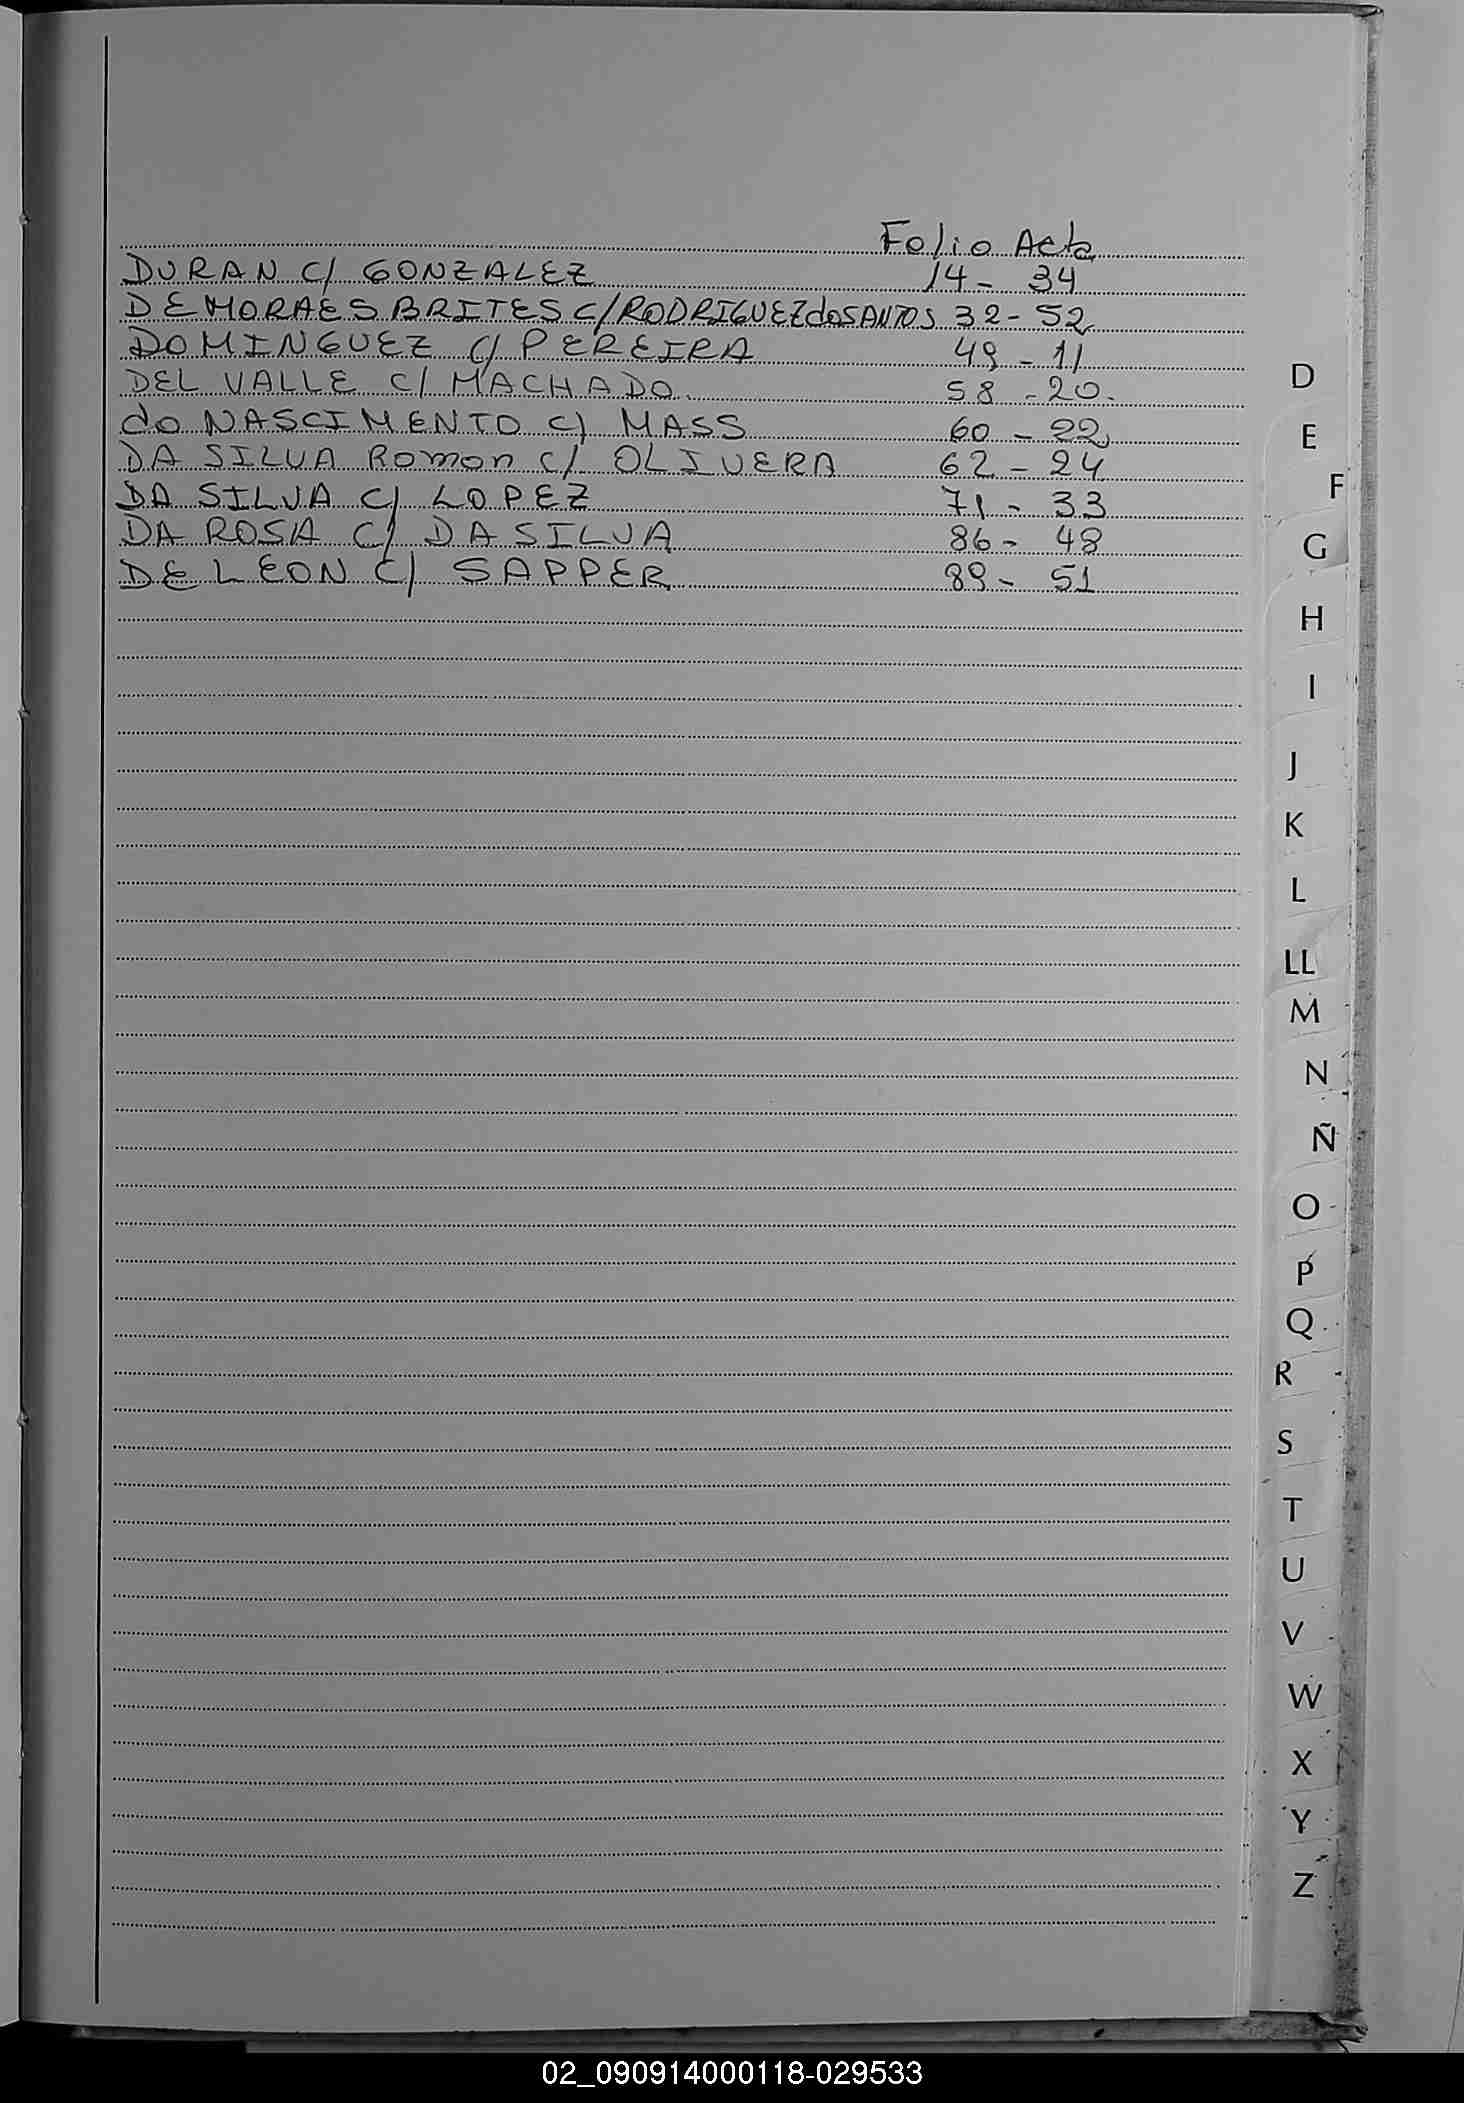 Folio Acta
DURAN C/ GONZALEZ 14 - 34
DE MORAES BRITES C/ RODRIGUEZ dos SANTOS 32 - 52
DOMINGUEZ C/ PEREIRA 49 - 11
DEL VALLE C/ MACHADO. 58 - 20.
do NASCIMENTO C/ MASS 60 - 22
DA SILVA Roman C/ OLIVERA 62 - 24
DA SILVA C/ LOPEZ 71 - 33
DA ROSA C/ DA SILVA 86 - 48
DE LEON C/ SAPPER 89 - 51
D
E
F
G
H
I
J
K
L
LL
M
N
Ñ
O
P
Q
R
S
T
U
V
W
X
Y
Z
02_090914000118-029533